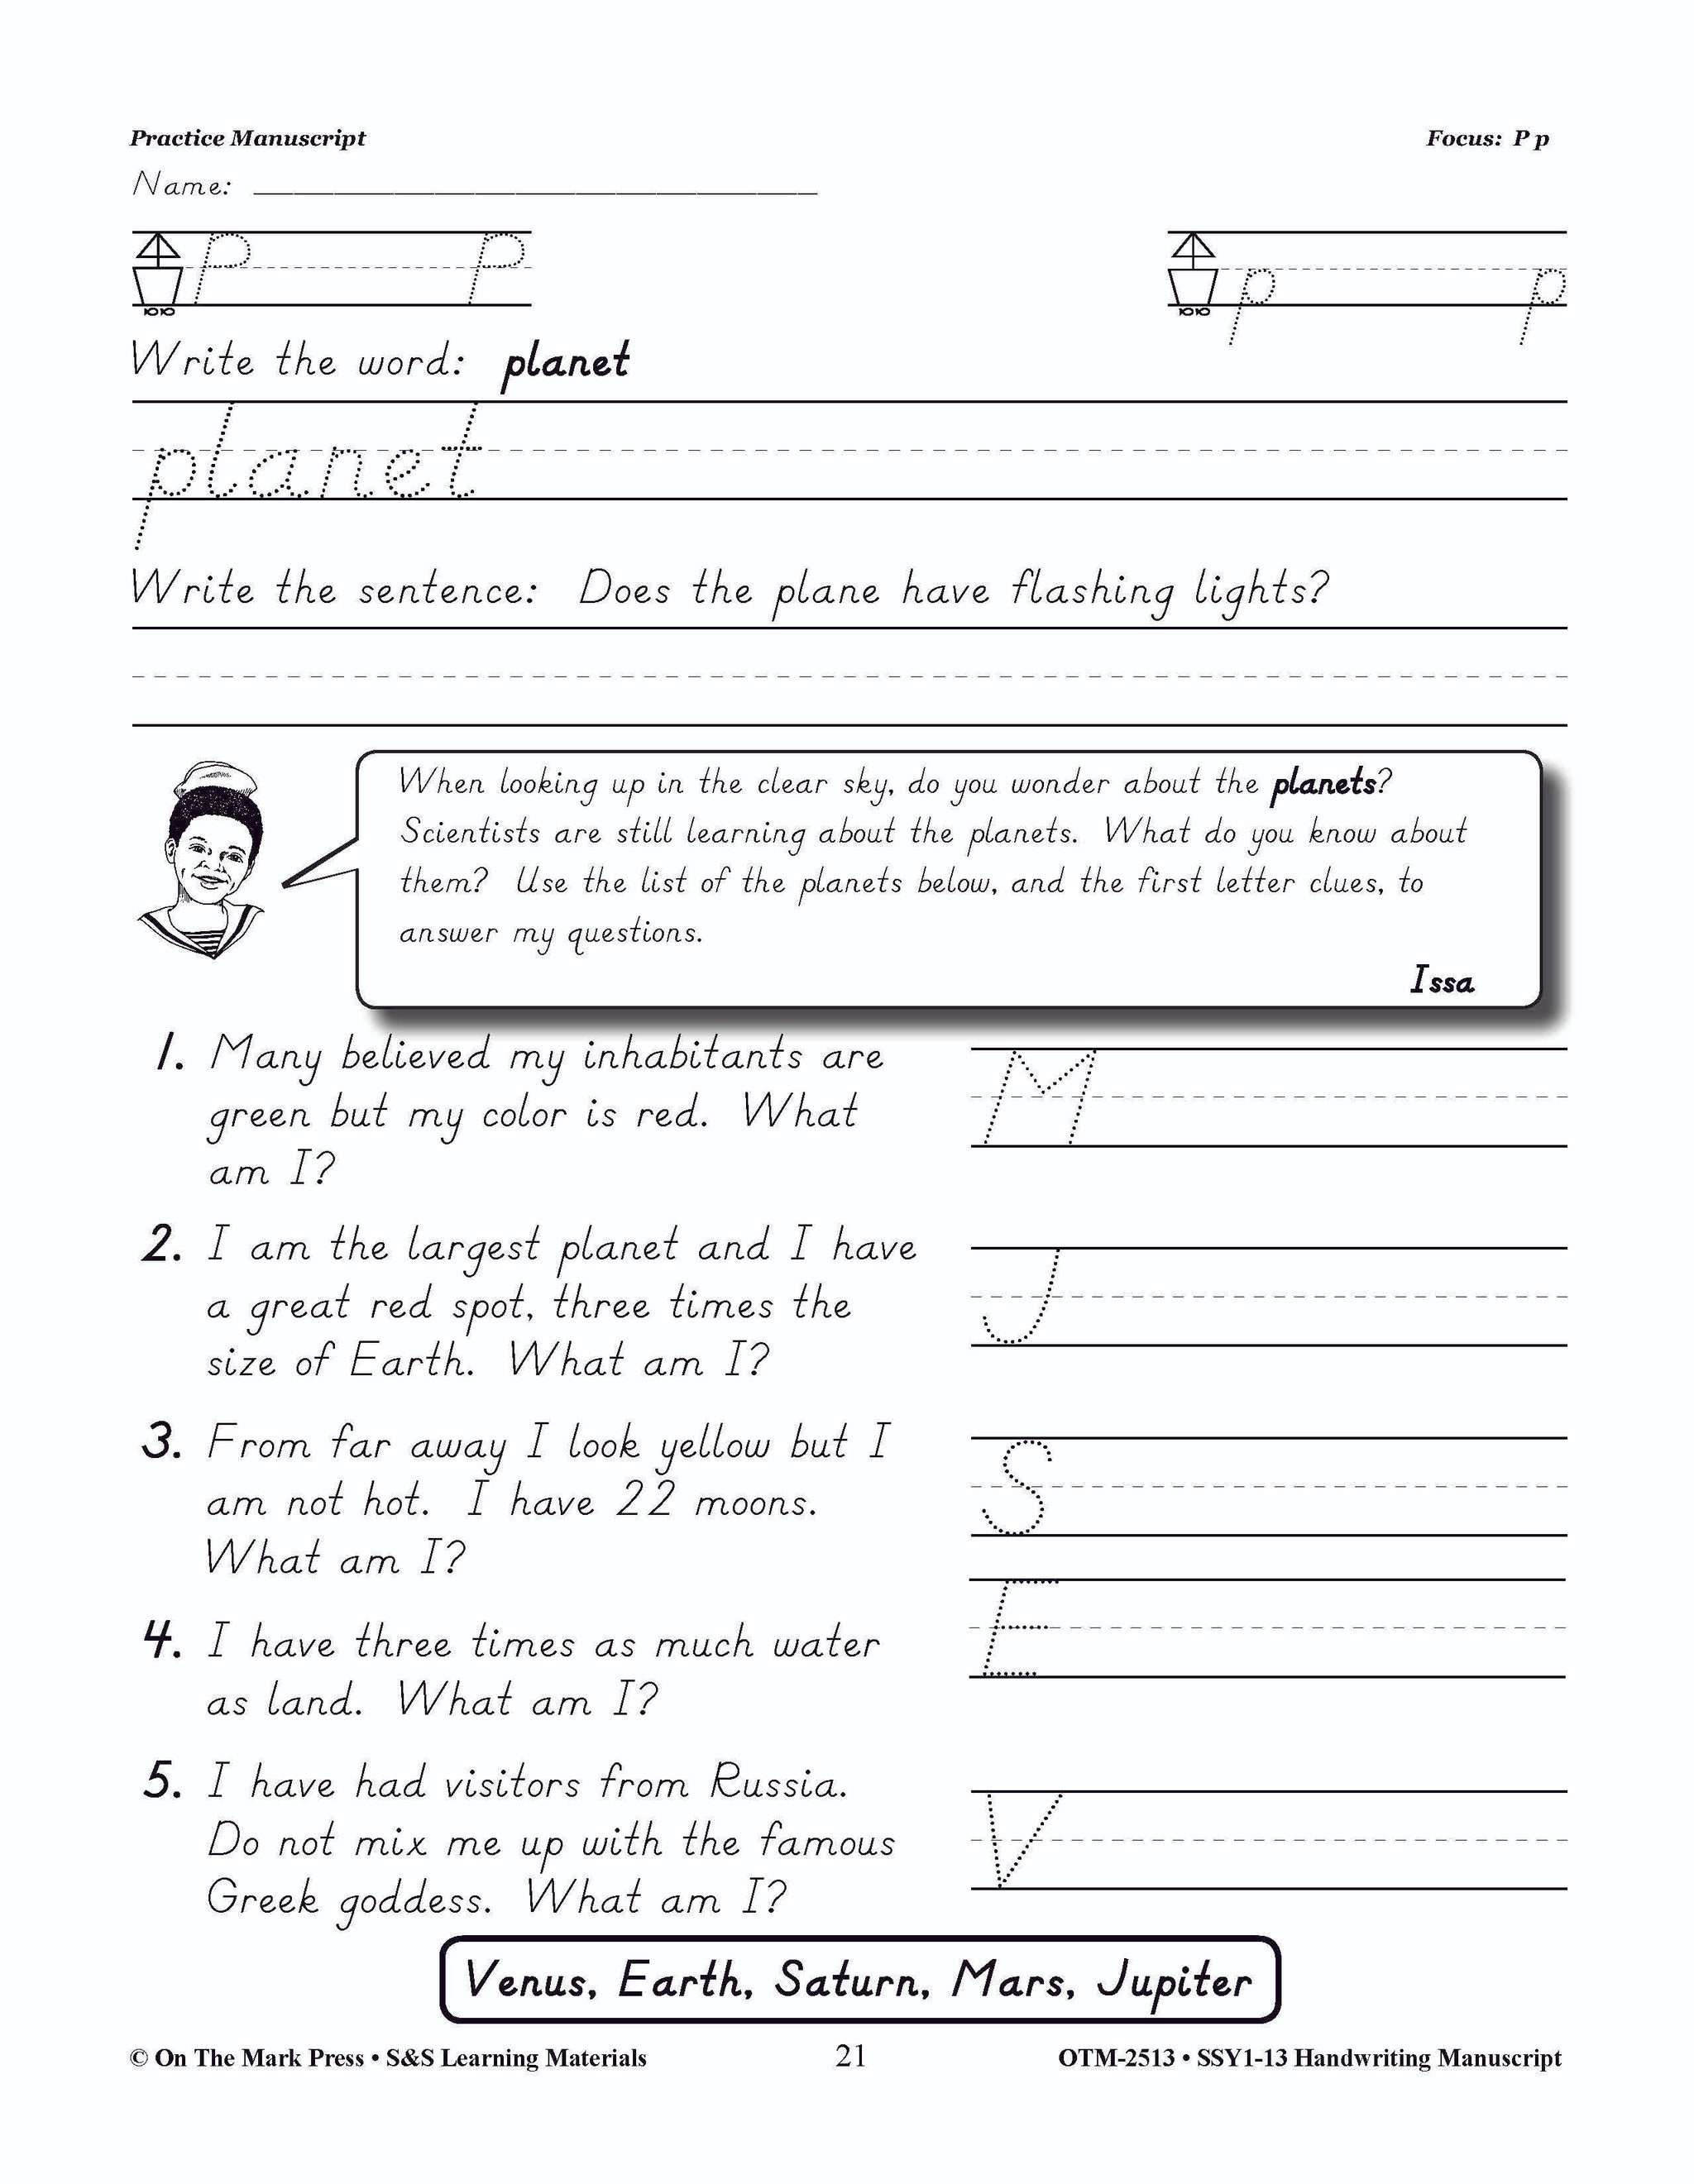 Practice Manuscript Focus: P p
Name:
P P p p
Write the word: planet
planet
Write the sentence: Does the plane have flashing lights?
When looking up in the clear sky, do you wonder about the planets?
Scientists are still learning about the planets. What do you know about
them? Use the list of the planets below, and the first letter clues, to
answer my questions.
Issa
1. Many believed my inhabitants are
green but my color is red. What
am I?
M
2. I am the largest planet and I have
a great red spot, three times the
size of Earth. What am I?
J
3. From far away I look yellow but I
am not hot. I have 22 moons.
What am I?
S
4. I have three times as much water
as land. What am I?
E
5. I have had visitors from Russia.
Do not mix me up with the famous
Greek goddess. What am I?
V
Venus, Earth, Saturn, Mars, Jupiter
© On The Mark Press • S&S Learning Materials 21 OTM-2513 • SSY1-13 Handwriting Manuscript